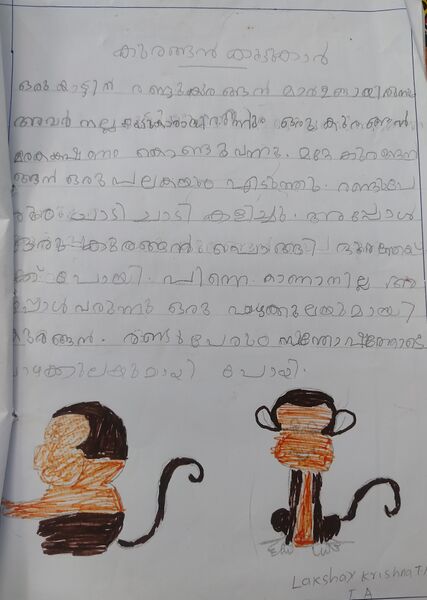 കുരങ്ങൻ കൂട്ടുകാർ
ഒരു കാട്ടിൽ രണ്ടു കുരങ്ങൻ മാർ ഉണ്ടായിരുന്നു
അവർ നല്ല കൂട്ടുകാരായിരുന്നു ഒരു കുരങ്ങൻ
കൊണ്ടുവന്നു. മറ്റേ കുരങ്ങ
ങ്ങൻ ഒരു പലകയും എടുത്തു. രണ്ടുപേ
രും ചാടി ചാടി കളിച്ചു. അപ്പോൾ
ഒരു കുരങ്ങൻ പൊങ്ങി ദൂരത്തേ
ക്ക് പോയി. പിന്നെ കാണാനില്ല അ
പ്പോൾ വരുന്നു ഒരു പഴക്കുലയുമായി
കുരങ്ങൻ. രണ്ടു പേരും സന്തോഷത്തോടെ
പഴക്കുലയുമായി പോയി.
Lakshay Krishna T.
I A